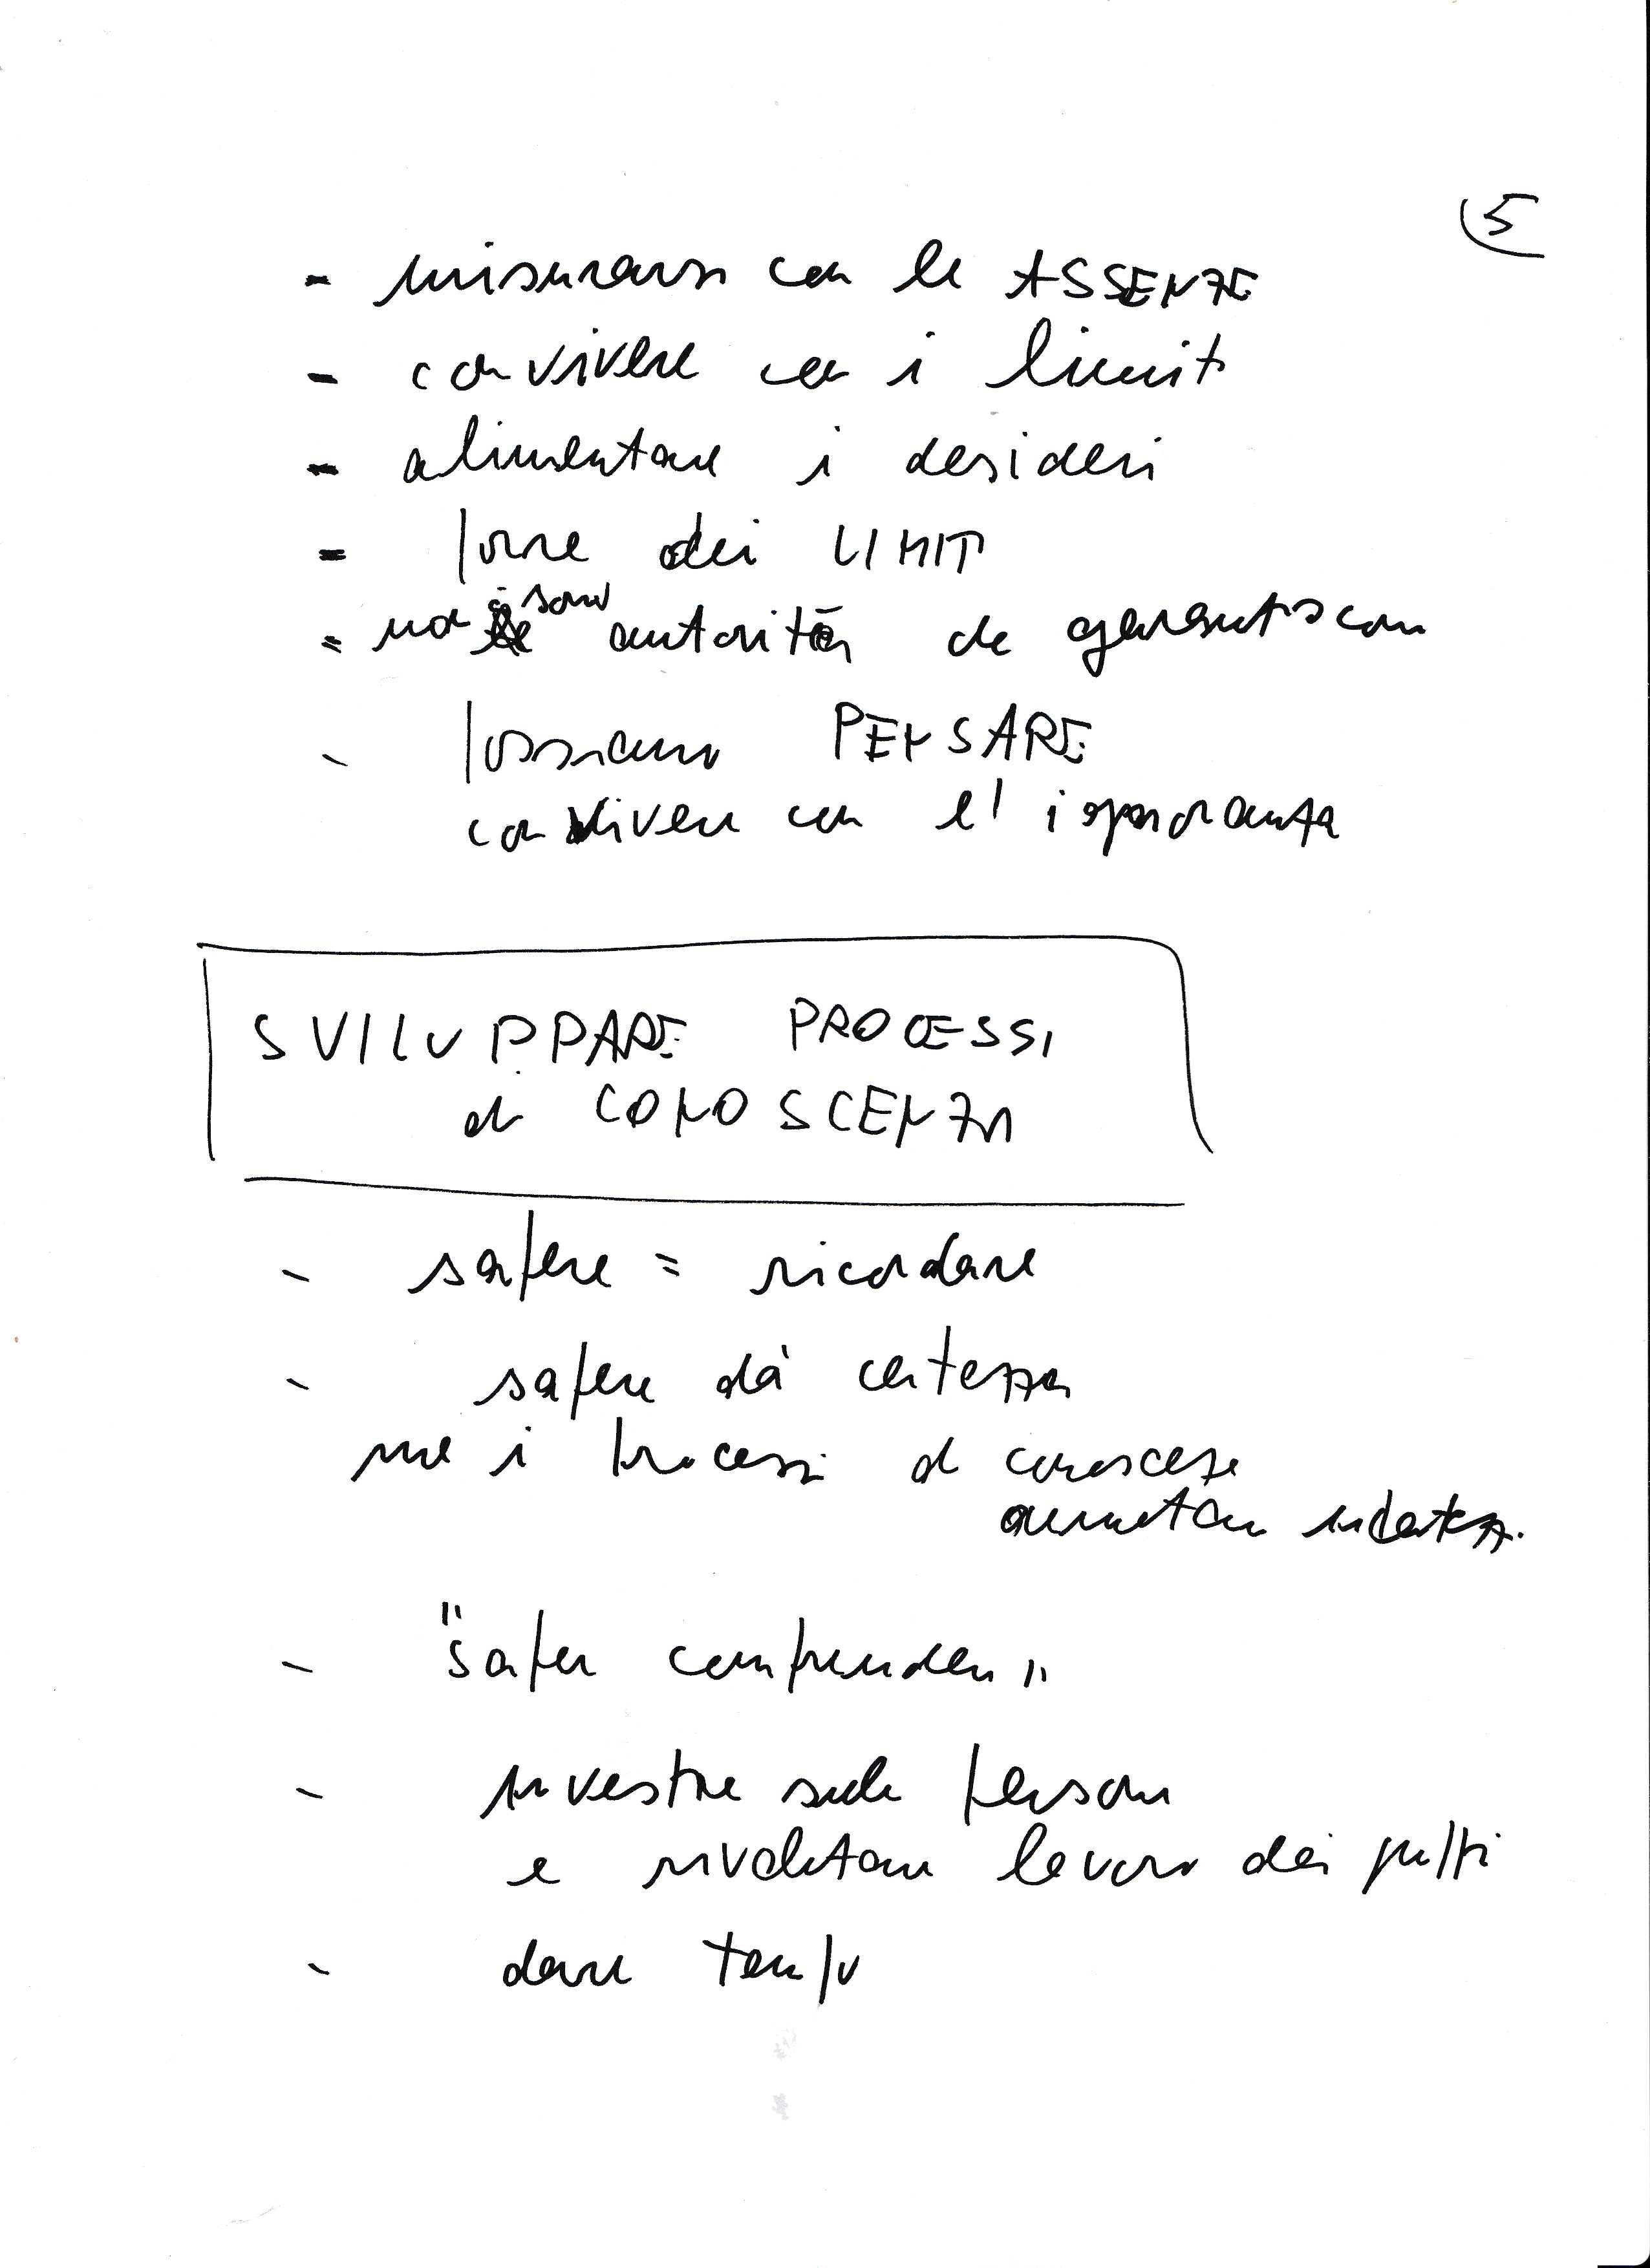 5
- misurarsi con le ASSENZE
- convivere con i limiti
- alimentare i desideri
- porre dei LIMITI
- non ci sono autorità che garantiscono
- possiamo PENSARE
convivere con l'ignoranza
SVILUPPARE PROCESSI
di CONOSCENZA
- sapere = ricordare
- sapere dà certezza
ma i processi di conoscenza
aumentano incertezza
- "saper comprendere"
- investire sulle persone
e rivalutare lavoro dei gruppi
- dare tempo